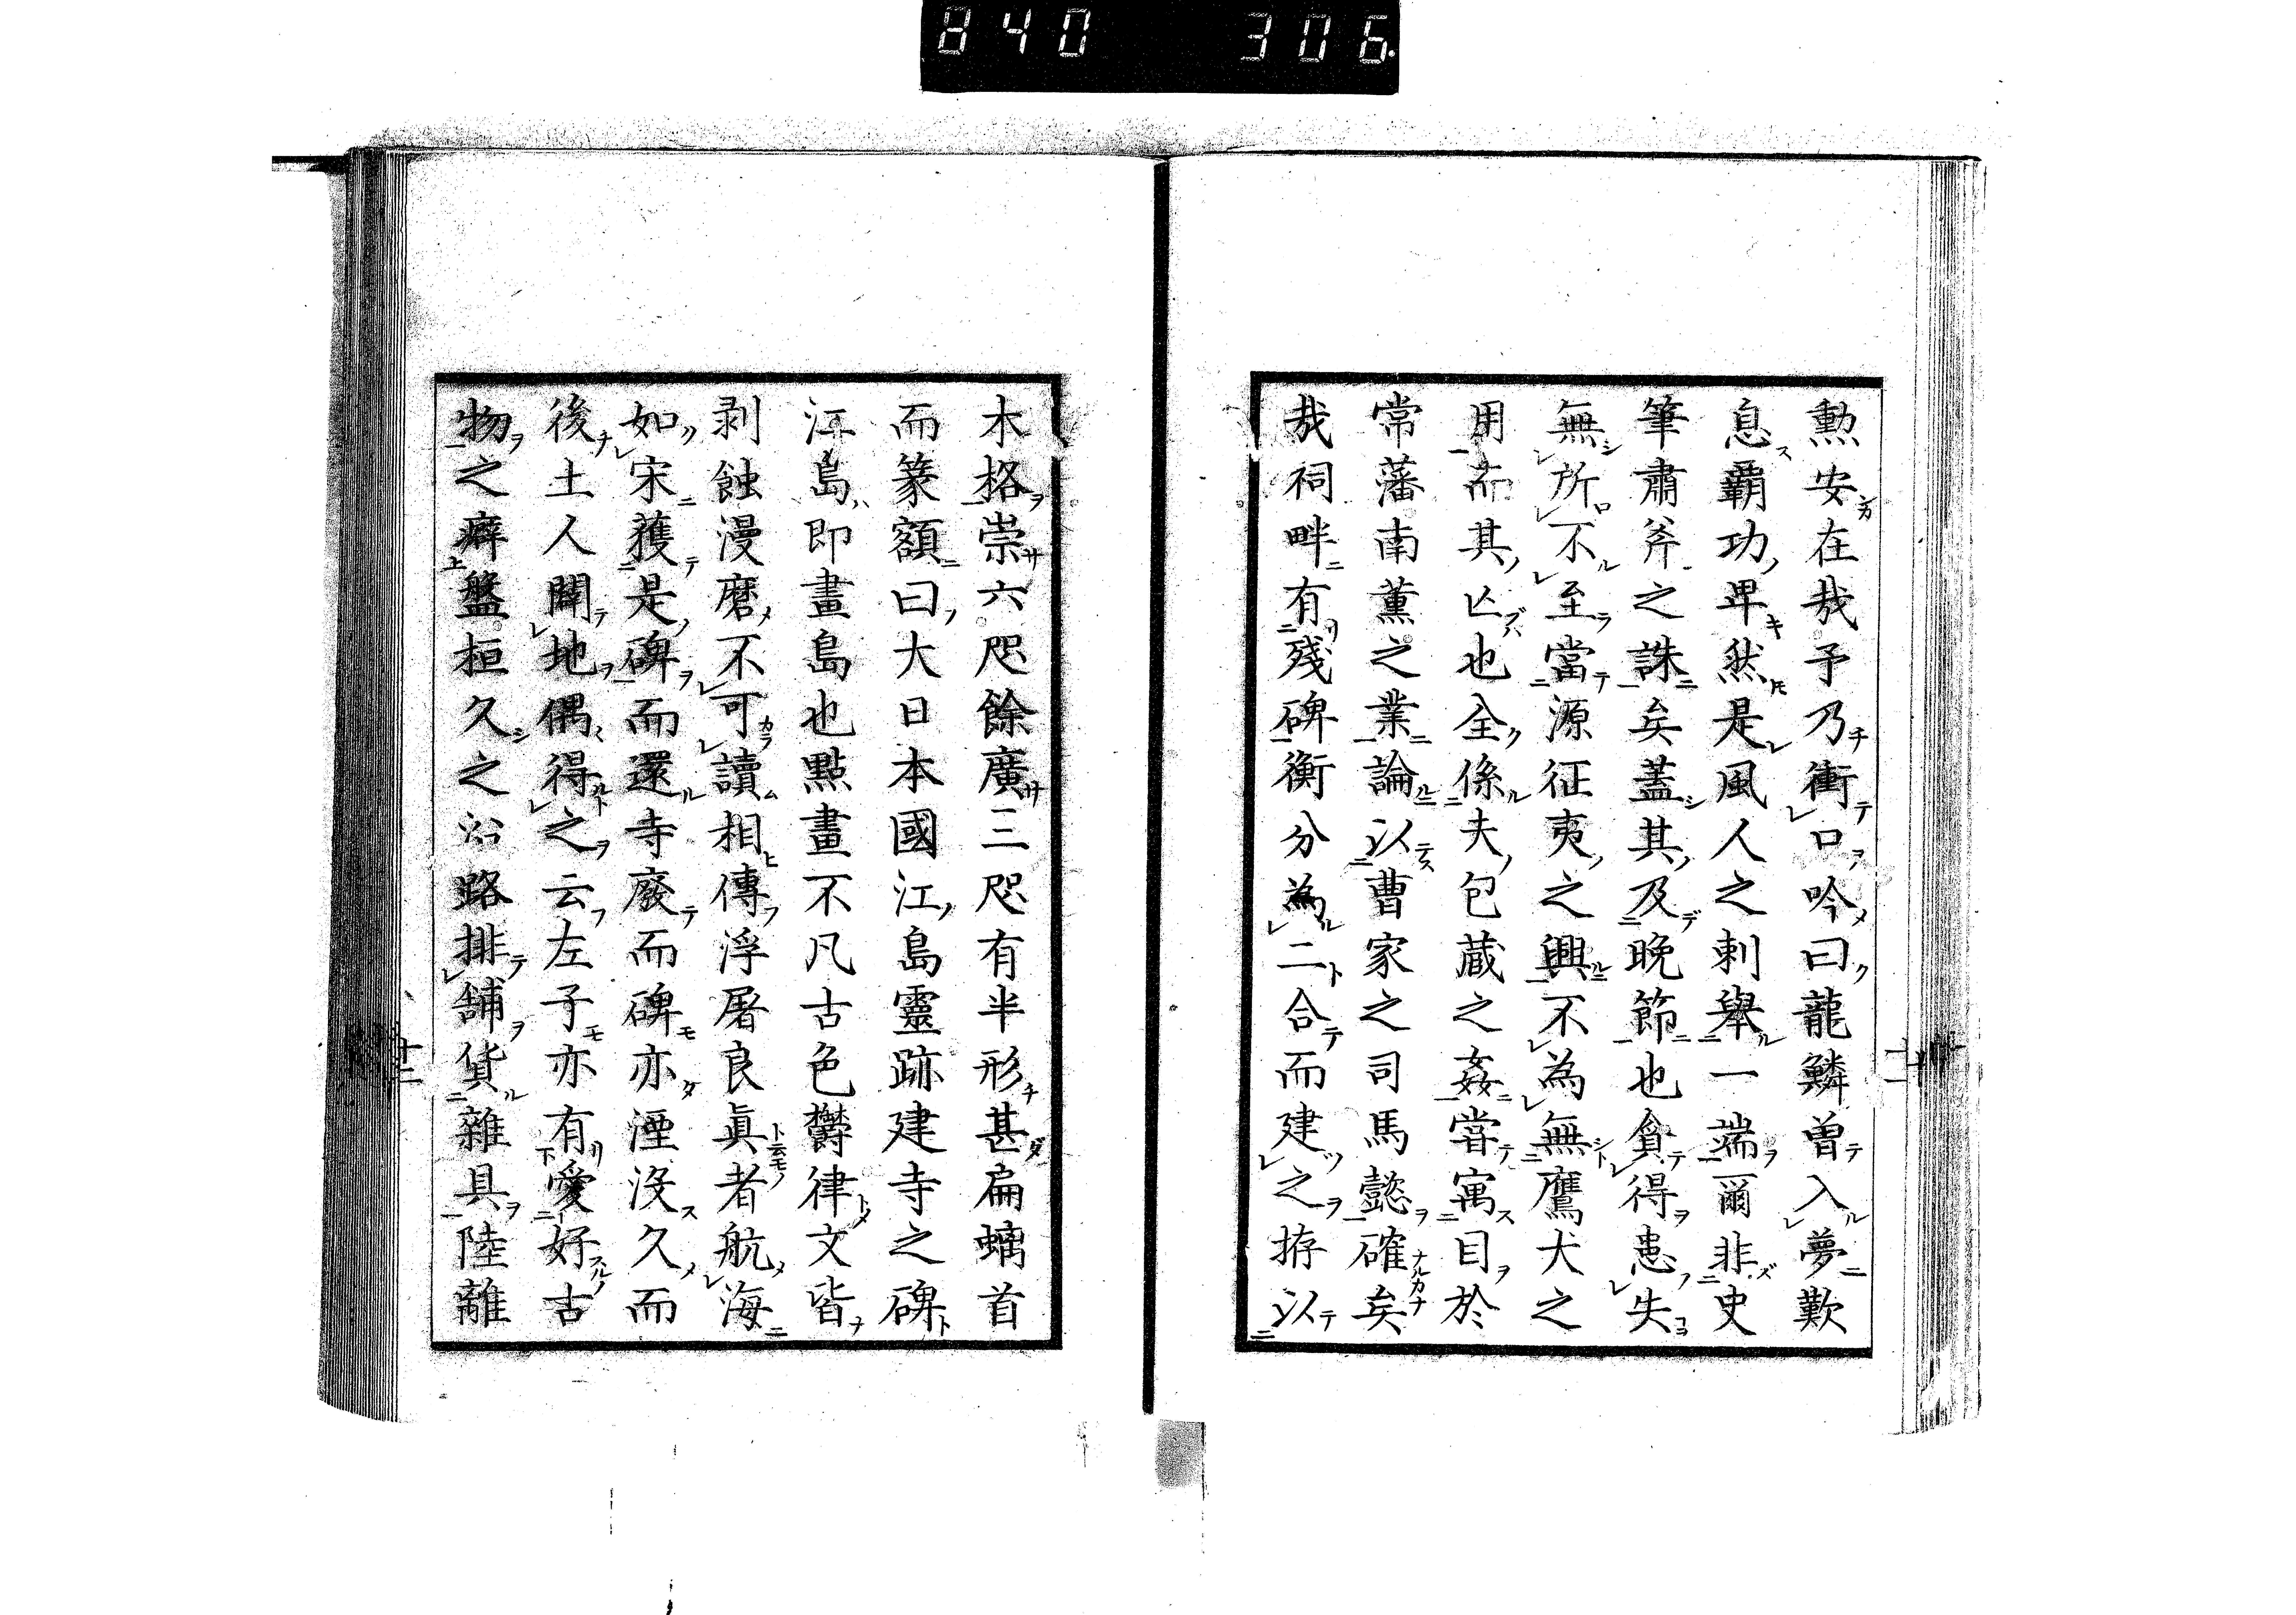 840 306
勲安在哉予乃衝口吟曰龍鱗曽入夢歎
息覇功卑然是風人之刺舉一端爾非史
筆肅斧之誅矣蓋其及晩節也貪得患失
無所不至當源征夷之興不為無鷹犬之
用而其亡也全係夫包蔵之姦嘗寓目於
常藩南薫之業論以曹家之司馬懿確矣
哉祠畔有殘碑衡分為二合而建之㨀以
木格崇六咫餘廣三咫有半形甚扁螭首
而篆額曰大日本國江島靈跡建寺之碑
江島即畫島也點畫不凡古色欝律文皆
剥蝕漫磨不可讀相傳浮屠良眞者航海
如宋獲是碑而還寺廢而碑亦湮没久而
後土人闢地偶得之云左子亦有愛好古
物之癖盤桓久之沿路排舗貨雜具陸離